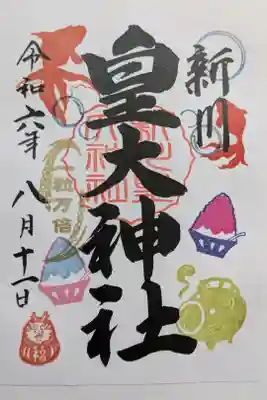 新川
皇大神社
令和六年
八月十一日
一粒万倍
福